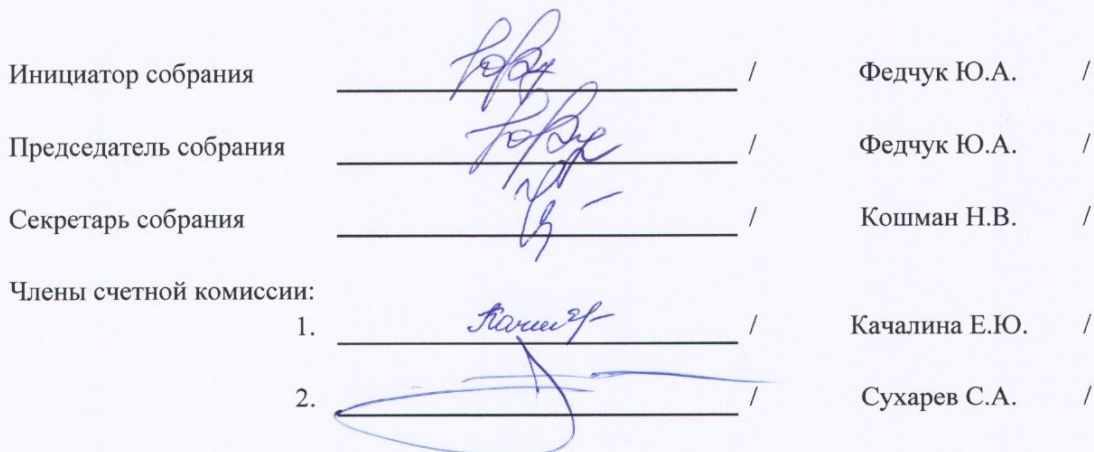 Инициатор собрания / Федчук Ю.А. /
Председатель собрания / Федчук Ю.А. /
Секретарь собрания / Кошман Н.В. /
Члены счетной комиссии:
1. / Качалина Е.Ю. /
2. / Сухарев С.А. /